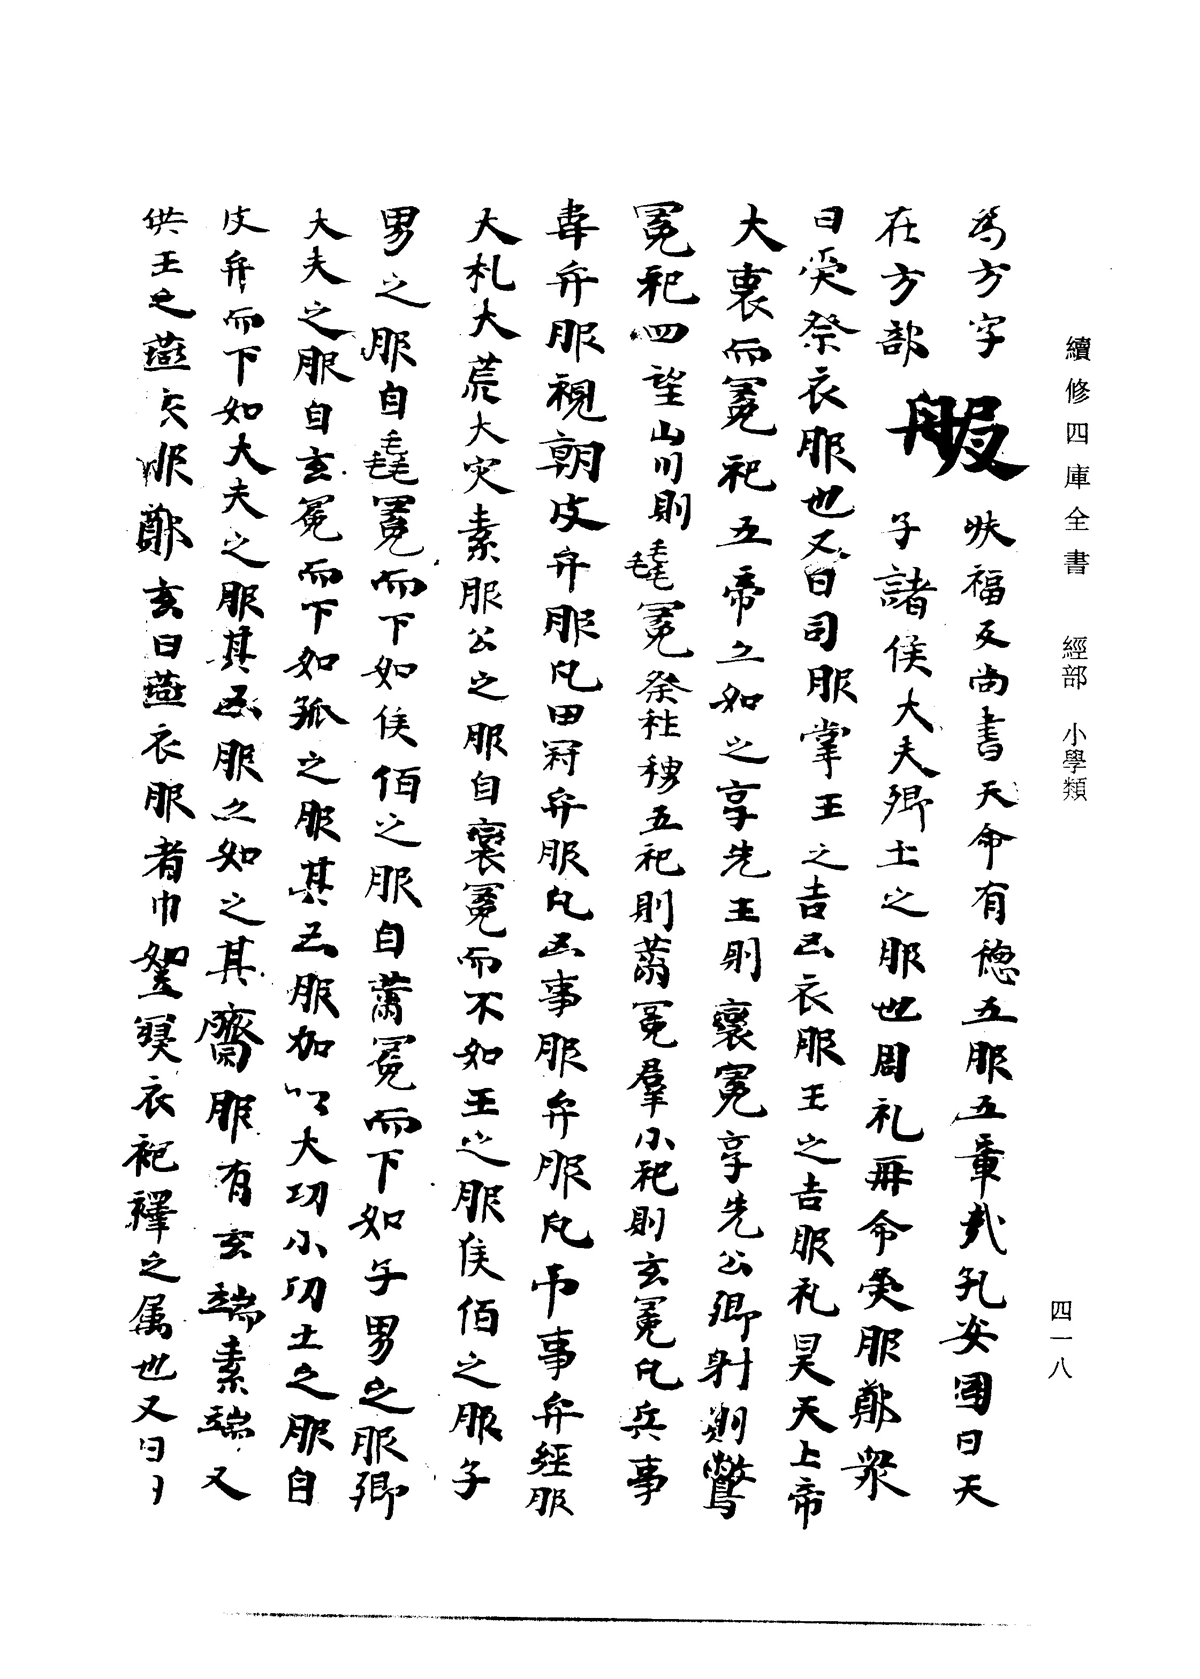 續修四庫全書 經部 小學類
四一八
為方字
在方部
服
扶福反尚書天命有德五服五章哉孔安國曰天
子諸侯大夫卿士之服也周礼再命受服鄭衆
曰受祭衣服也又曰司服掌王之吉凶衣服王之吉服礼昊天上帝
大裘而冕祀五帝亦如之享先王則衮冕享先公卿射則鷩
冕祀四望山川則毳冕祭社稷五祀則𫄨冕羣小祀則玄冕凡兵事
韋弁服視朝皮弁服凡田冠弁服凡凶事服弁服凡吊事弁経服
大札大荒大灾素服公之服自衮冕而不如王之服侯伯之服子
男之服自毳冕而下如侯佰之服自𫄨冕而下如子男之服卿
大夫之服自玄冕而下如孤之服其凶服加以大功小功士之服自
皮弁而下如大夫之服其凶服亦如之其齋服有玄端素端又
供王之燕衣服鄭玄曰燕衣服者巾絮寢衣袍襗之属也又曰